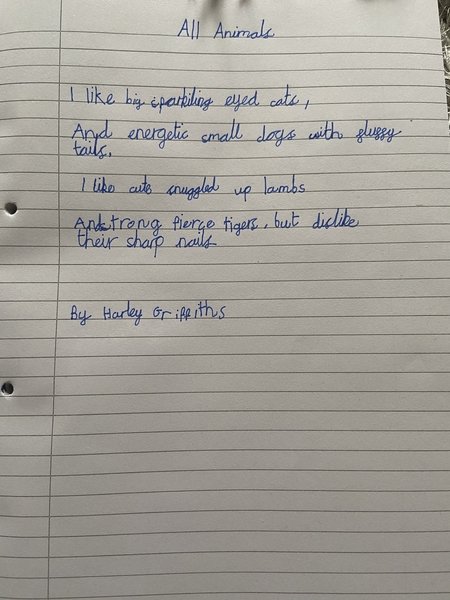 All Animals
I like big sparkiling eyed cats,
And energetic small dogs with fluffy
tails.
I like cute snuggled up lambs
And strong fierce tigers, but dislike
their sharp nails
By Harley Griffiths